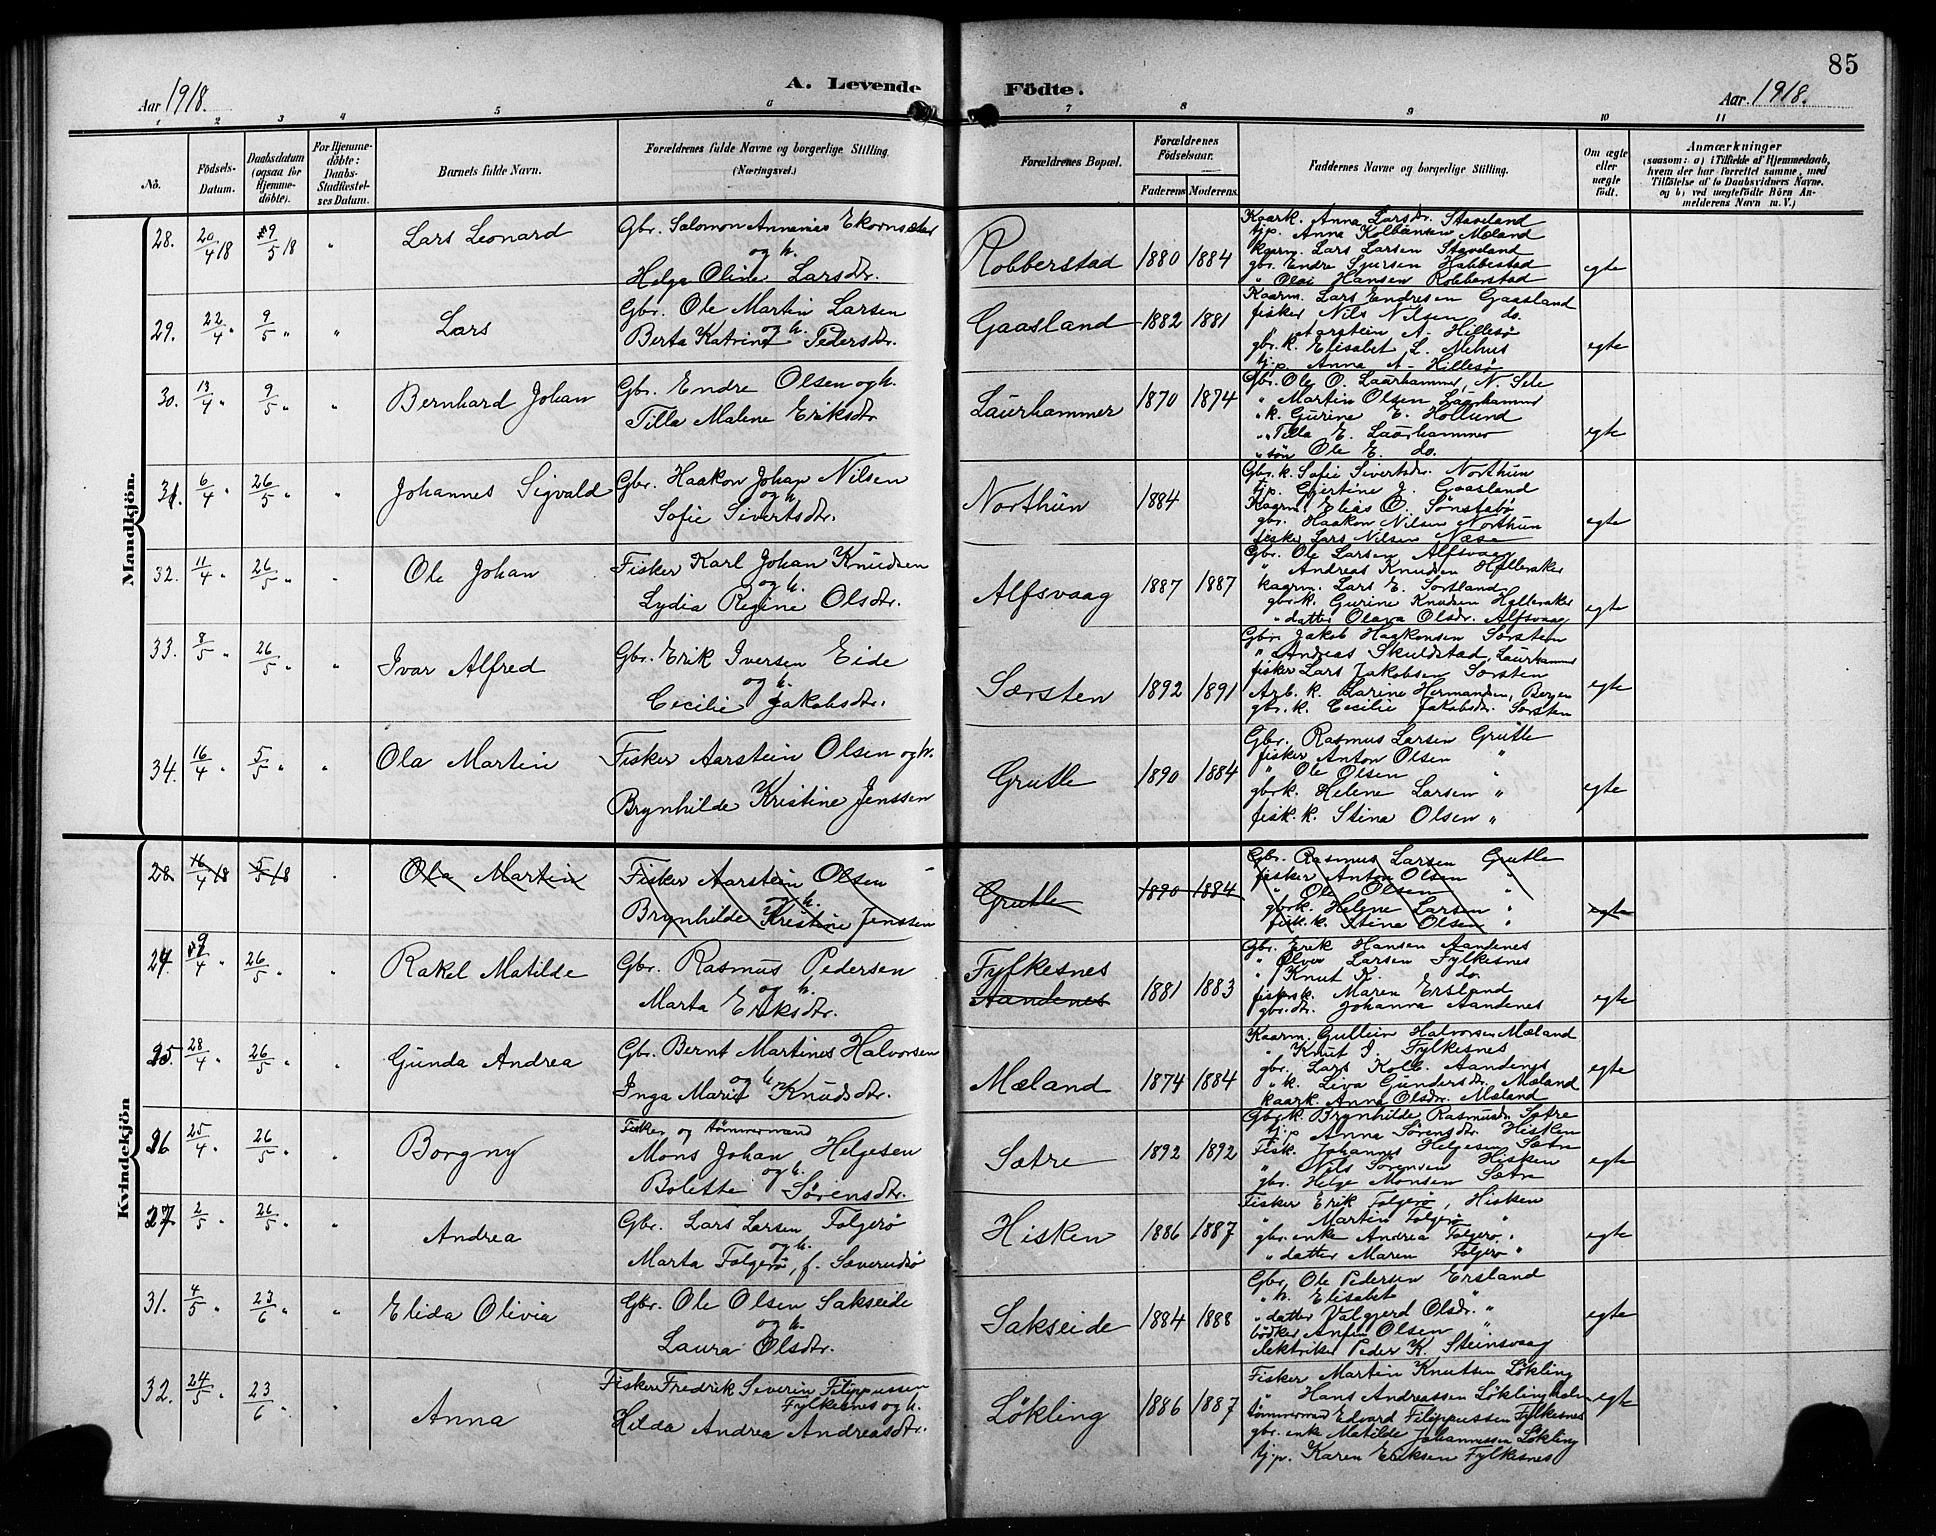 85
Aar 1918.
A. Levende Födte.
Aar. 1918.
1 2 3 4 5 6 7 8 9 10 11
No.
Födsels-Datum.
Daabsdatum (ogsaa for Hjemme-döbte).
For Hjemme-döbte: Daabs-Stadfæstel-ses Datum.
Barnets fulde Navn.
Forældrenes fulde Navne og borgerlige Stilling. (Næringsvei.)
Forældrenes Bopæl.
Forældrenes Födselsaar.
Faderens Moderens.
Faddernes Navne og borgerlige Stilling.
Om ægte eller uægte født.
Anmærkninger
(saasom: a) i Tilfælde af Hjemmedaab, hvem der har forrettet samme, med Tilföielse af to Daabsvidners Navne, og b) ved uægtefödte Börn An-melderens Navn m. V.)
Mandkjön.
28. 20/4 18 9/5 18 " Lars Leonard
Gbr. Salomon Annanias Ekornsæter
og h.
Helga Oline Larsdtr.
Robberstad 1880 1884
Kaark. Anna Larsdr. Staveland
tjp. Anna Kolbensen Mæland
kaarm. Lars Larsen Staveland
gbr. Endre Sjursen Habbestad
" Olai Hansen Robberstad
egte
29. 22/4 " 9/5 " " Lars
Gbr. Ole Martin Larsen
og h.
Berta Katrine Pedersdtr.
Gaasland 1882 1881
Kaarm. Lars Endresen Gaasland
fisker Nils Nilsen do.
" Aarstein A. Hillesø
gbr. k. Elisabet L. Mehus
tj.p. Anna A. Hillesø
egte
30. 13/4 " 9/5 " " Bernhard Johan
Gbr. Endre Olsen og h.
Tilla Malene Eriksdtr.
Laurhammer 1870 1874
Gbr. Ole O. Laurhammer, N. Sele
" Martin Olsen Laurhammer
" k. Gurine E. Hollund
" " Tilla E. Laurhammer
" søn Ole E. do.
egte
31. 6/4 " 26/5 " " Johannes Sigvald
Gbr. Haakon Johan Nilsen
og h.
Sofie Sivertsdtr.
Northun 1884
Gbr. k. Sofie Sivertsdr. Northun
tjp. Gjertine J. Gaasland
Kaarm. Elias O. Sønstabø
gbr. Haakon Nilsen Northun
fisker Lars Nilsen Næse
egte
32. 11/4 " 26/5 " " Ole Johan
Fisker Karl Johan Knudsen
og h.
Lydia Regine Olsdtr.
Alfsvaag 1887 1887
Gbr. Ole Larsen Alfsvaag
" Andreas Knudsen Halleraker
kaarm. Lars E. Sortland
gbr. k. Gurine Knudsen Halleraker
" datter Olava Olsdr. Alfsvaag
egte
33. 8/5 " 26/5 " " Ivar Alfred
Gbr. Erik Iversen Eide
og h.
Cecilie Jakobsdtr.
Særsten 1892 1891
Gbr. Jakob Haakonsen Særsten
" Andreas Skuldstad, Laurhammer
fisker Lars Jakobsen Særsten
Arb. k. Larine Hermansen, Bergen
gbr. k. Cecilie Jakobsdr. Særsten
egte
34. 16/4 " 5/5 " " Ola Martin
Fisker Aarstein Olsen og h.
Brynhilde Kristine Jenssen
Grutle 1890 1884
Gbr. Rasmus Larsen Grutle
fisker Anton Olsen "
" Ole Olsen "
gbrk. Helene Larsen "
fisk. k. Stina Olsen "
egte
Kvindekjön
28 16/4 18 5/5 18 " Ola Martin
Fisker Aarstein Olsen
og h.
Brynhilde Kristine Jenssen
Grutle 1890 1884
Gbr. Rasmus Larsen Grutle
fisker Anton Olsen "
" Ole Olsen "
gbrk. Helene Larsen "
fisk. k. Stina Olsen "
egte
24. 9/4 26/5 " " Rakel Matilde
Gbr. Rasmus Pedersen
og h.
Marta Eriksdtr.
Fylkesnes
Aandenes
1881 1883
Gbr. Erik Hansen Aandenes
" Olver Larsen Fylkesnes
" Knut K. do.
fisker k. Maren Ersland
gbr. dtr. Johanna Aandenes
egte
25. 28/4 26/5 " " Gunda Andrea
Gbr. Bernt Martines Halvorsen
og h.
Inga Marie Knudsdtr.
Mæland 1874 1884
Kaarm. Gullein Halvorsen Mæland
" Knut J. Fylkesnes
gbr. Lars Kolb. Aandenes
" k. Liva Gundersdr. Mæland
kaark. Anna Olsdr. Mæland
egte
26 25/4 " 26/5 " " Borgny
Fisker og tømmermand
Mons Johan Helgesen
og h.
Bolette Sørensdtr.
Sætre 1892 1892
Gbrk. Brynhilde Rasmusdr. Sætre
tj.p Anna Sørensdr. Hisken
Fisk. Johannes Helgesen Sætre
" Nils Sørensen Hisken
gbr. Helge Monsen Sætre
egte
27 2/5 " 26/5 " " Andrea
Gbr. Lars Larsen Folgerø
og h.
Marta Folgerø, f. Sæverudsø
Hisken 1886 1887
Fisker Erik Folgerø, Hisken
" Martin Folgerø "
gbr. enke Andrea Folgerø "
" datter Maren Folgerø "
egte
31. 4/5 " 23/6 " " Elida Olivia
Gbr. Ole Olsen Sakseide
og h.
Laura Olsdtr.
Sakseide 1884 1888
Gbr. Ole Pedersen Ersland
" h. Elisabet "
" datter Valgjerd Olsdr. "
bödker Anfin Olsen "
elektriker Peder K. Steinsvaag
egte
32. 24/5 " 23/6 " " Anna
Fisker Fredrik Severin Filippussen
Fylkesnes og h.
Hilda Andrea Andreasdtr.
Løkling 1886 1887
Fisker Martin Knutsen Løkling
" Hans Andreassen Løklingholm
tømmermand Edvard Filippussen Fylkesnes
gbr. enke Matilde Johannessen Løkling
tj.p. Karen Eriksen Fylkesnes
egte